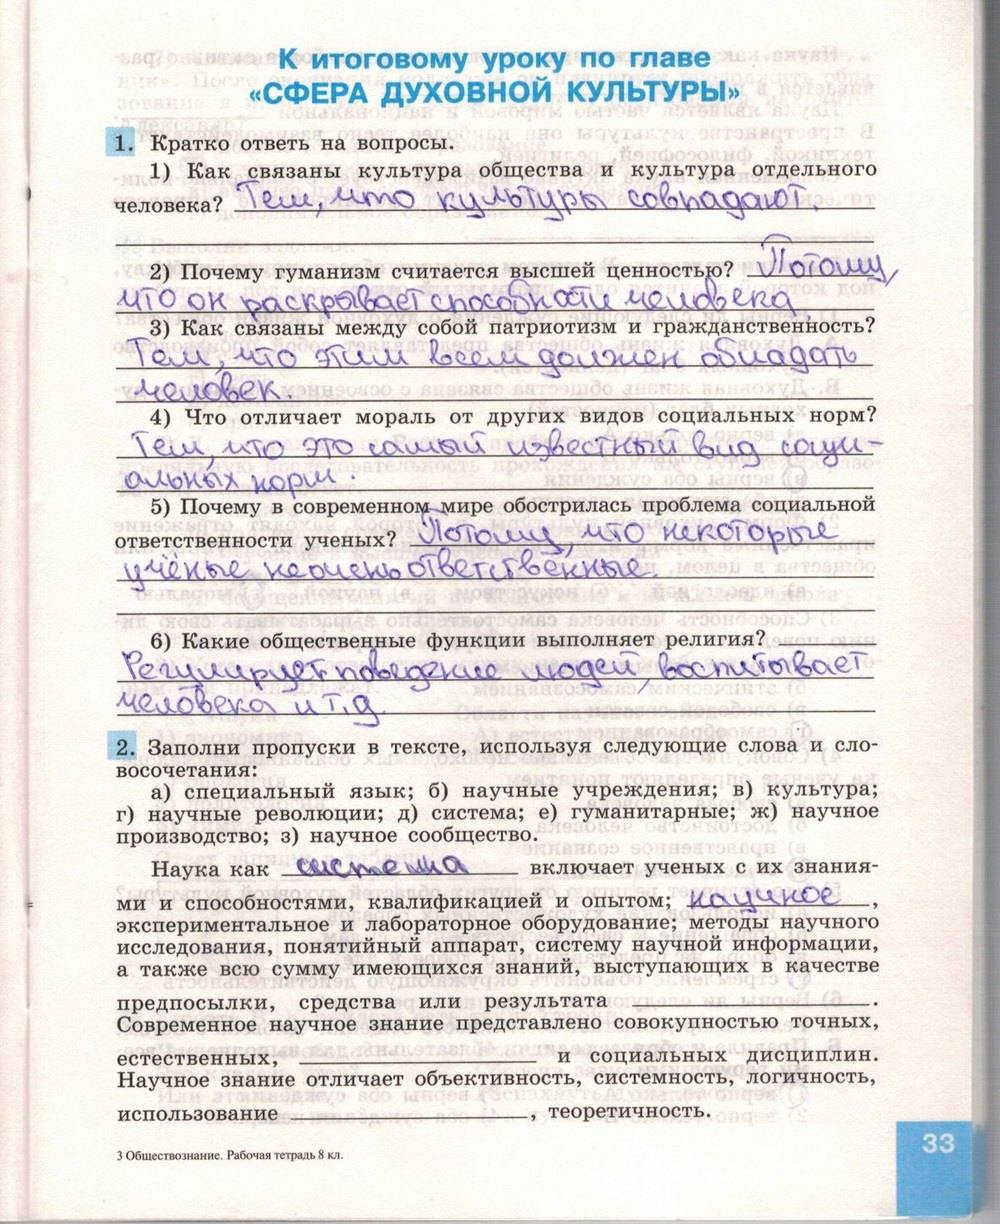 К итоговому уроку по главе
«СФЕРА ДУХОВНОЙ КУЛЬТУРЫ»
1. Кратко ответь на вопросы.
1) Как связаны культура общества и культура отдельного
человека? Тем, что культуры совпадают.
2) Почему гуманизм считается высшей ценностью? Потому,
что он раскрывает способности человека
3) Как связаны между собой патриотизм и гражданственность?
Тем, что этим всем должен обладать
человек.
4) Что отличает мораль от других видов социальных норм?
Тем, что это самый известный вид соци-
альных норм.
5) Почему в современном мире обострилась проблема социальной
ответственности ученых? Потому, что некоторые
учёные не очень ответственные.
6) Какие общественные функции выполняет религия?
Регулирует поведение людей, воспитывает
человека и т.д.
2. Заполни пропуски в тексте, используя следующие слова и сло-
восочетания:
а) специальный язык; б) научные учреждения; в) культура;
г) научные революции; д) система; е) гуманитарные; ж) научное
производство; з) научное сообщество.
Наука как система включает ученых с их знания-
ми и способностями, квалификацией и опытом; научное ,
экспериментальное и лабораторное оборудование; методы научного
исследования, понятийный аппарат, систему научной информации,
а также всю сумму имеющихся знаний, выступающих в качестве
предпосылки, средства или результата .
Современное научное знание представлено совокупностью точных,
естественных, и социальных дисциплин.
Научное знание отличает объективность, системность, логичность,
использование , теоретичность.
3 Обществознание. Рабочая тетрадь 8 кл.
33